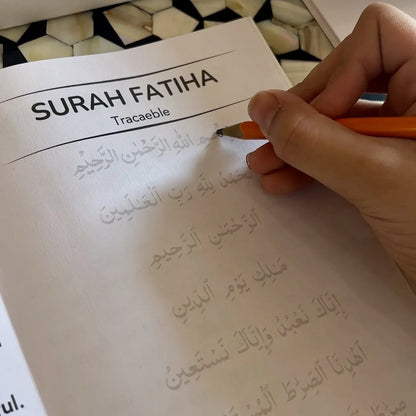 SURAH FATIHA
Tracaeble
بِسْمِ اللَّهِ الرَّحْمَٰنِ الرَّحِيمِ
لِلَّهِ رَبِّ ٱلْعَٰلَمِينَ
ٱلرَّحْمَٰنِ ٱلرَّحِيمِ
مَٰلِكِ يَوْمِ ٱلدِّينِ
إِيَّاكَ نَعْبُدُ وَإِيَّاكَ نَسْتَعِينُ
ٱهْدِنَا ٱلصِّرَٰطَ
صِرَٰطَ
ul.